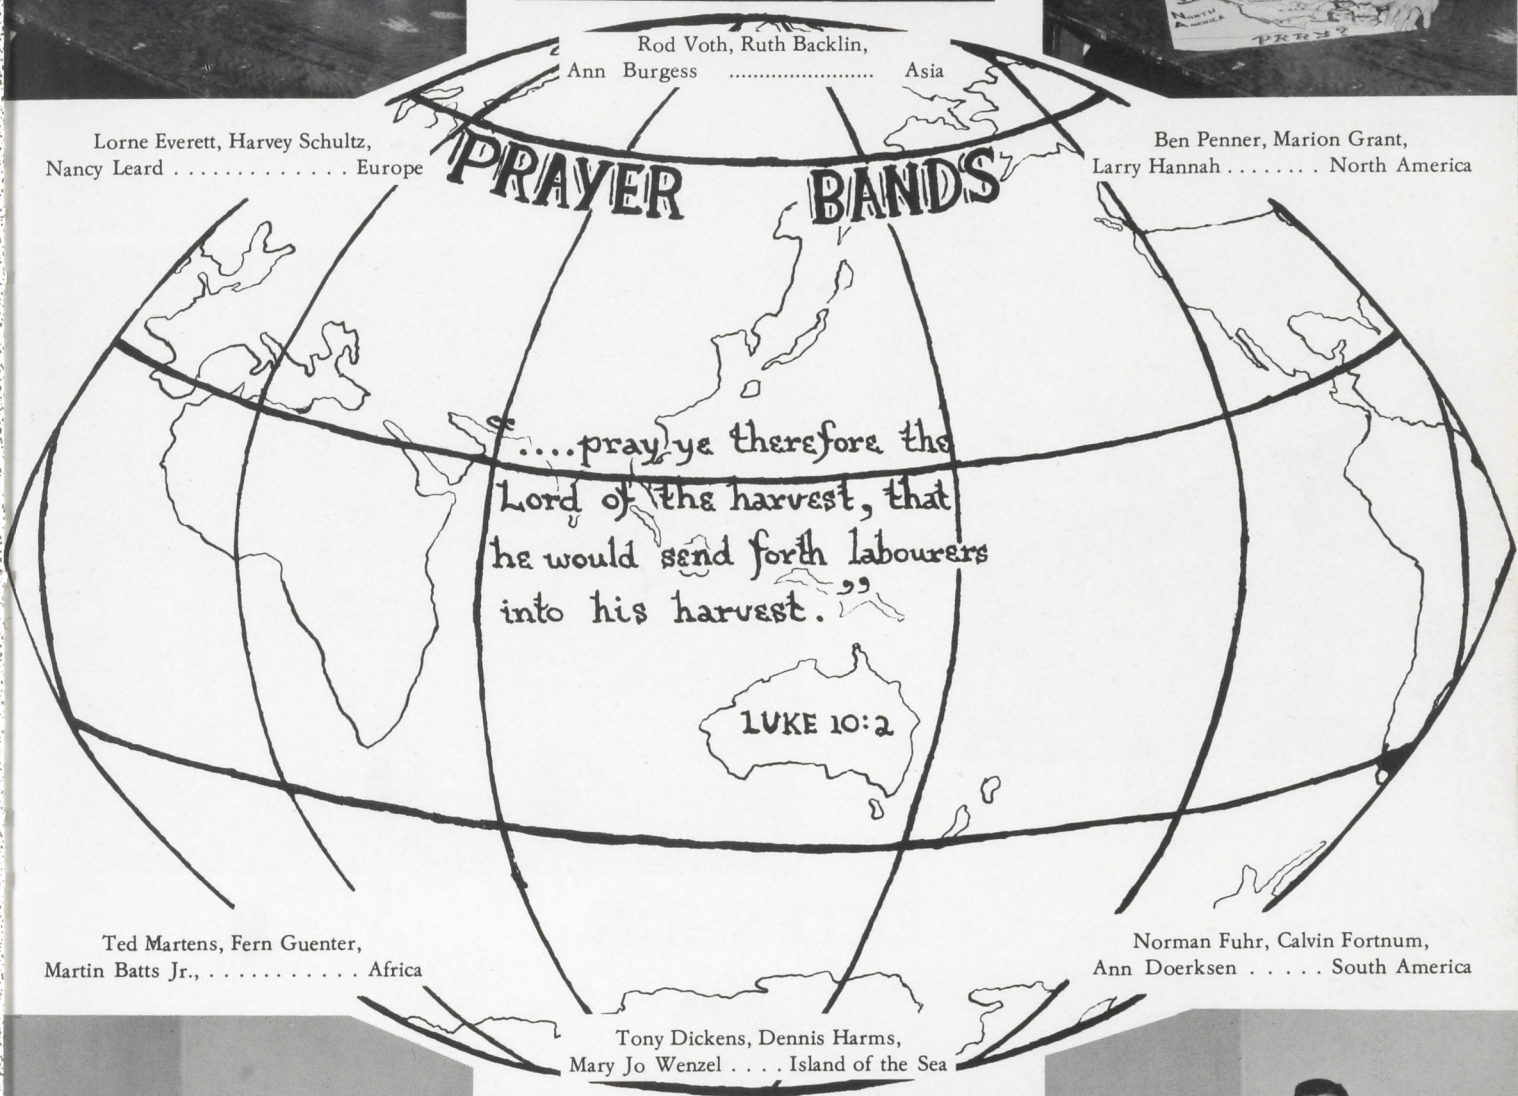 NORTH
AMERICA
PRAY?
Rod Voth, Ruth Backlin,
Ann Burgess ........................ Asia
Lorne Everett, Harvey Schultz,
Nancy Leard . . . . . . . . . . . . . Europe
Ben Penner, Marion Grant,
Larry Hannah . . . . . . . . North America
PRAYER BANDS
“....pray ye therefore the
Lord of the harvest, that
he would send forth labourers
into his harvest.”
LUKE 10:2
Ted Martens, Fern Guenter,
Martin Batts Jr., . . . . . . . . . . . Africa
Norman Fuhr, Calvin Fortnum,
Ann Doerksen . . . . . South America
Tony Dickens, Dennis Harms,
Mary Jo Wenzel . . . . Island of the Sea